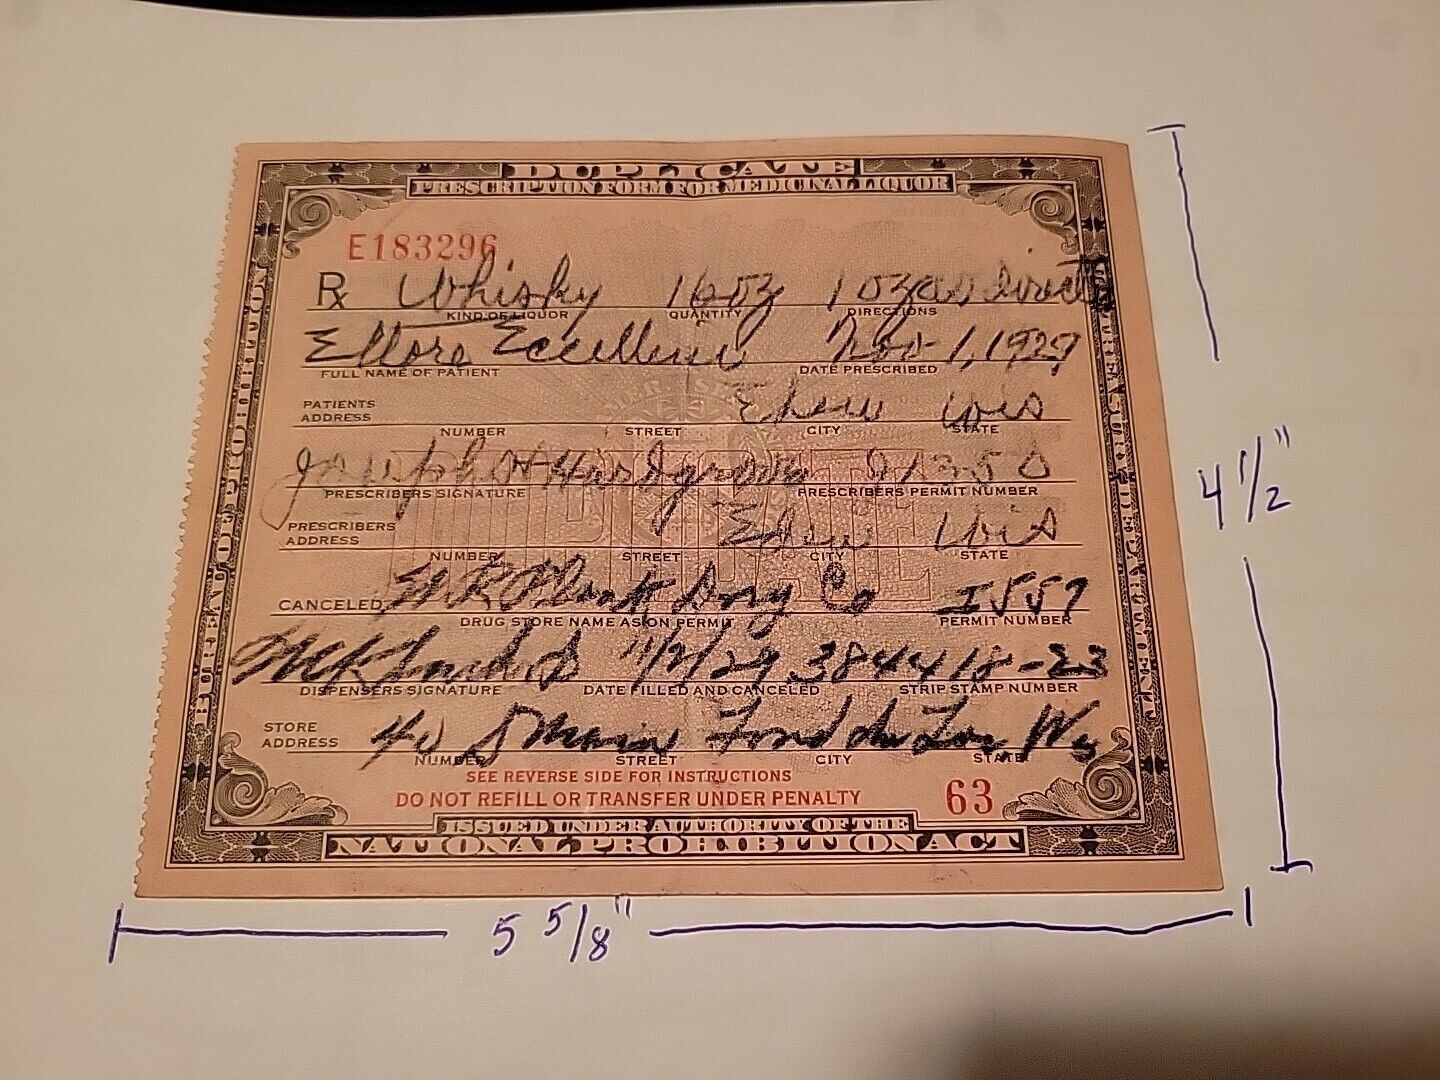 DUPLICATE
PRESCRIPTION FORM FOR MEDICINAL LIQUOR
E183296
Rx Whisky 16oz 1 oz as direct
KIND OF LIQUOR QUANTITY DIRECTIONS
Ettore Nov 1, 1929
FULL NAME OF PATIENT DATE PRESCRIBED
PATIENTS ADDRESS Eden Wis
NUMBER STREET CITY STATE
Joseph Hardgrove
PRESCRIBERS SIGNATURE PRESCRIBERS PERMIT NUMBER
PRESCRIBERS ADDRESS Eden Wis
NUMBER STREET CITY STATE
CANCELED Drug Co I557
DRUG STORE NAME AS ON PERMIT PERMIT NUMBER
11/2/29 384418-23
DISPENSERS SIGNATURE DATE FILLED AND CANCELED STRIP STAMP NUMBER
STORE ADDRESS 40 S Main Fond du Lac Wis
NUMBER STREET CITY STATE
SEE REVERSE SIDE FOR INSTRUCTIONS
DO NOT REFILL OR TRANSFER UNDER PENALTY 63
ISSUED UNDER AUTHORITY OF THE
NATIONAL PROHIBITION ACT
BUREAU OF PROHIBITION
DUPLICATE
4 1/2"
5 5/8"